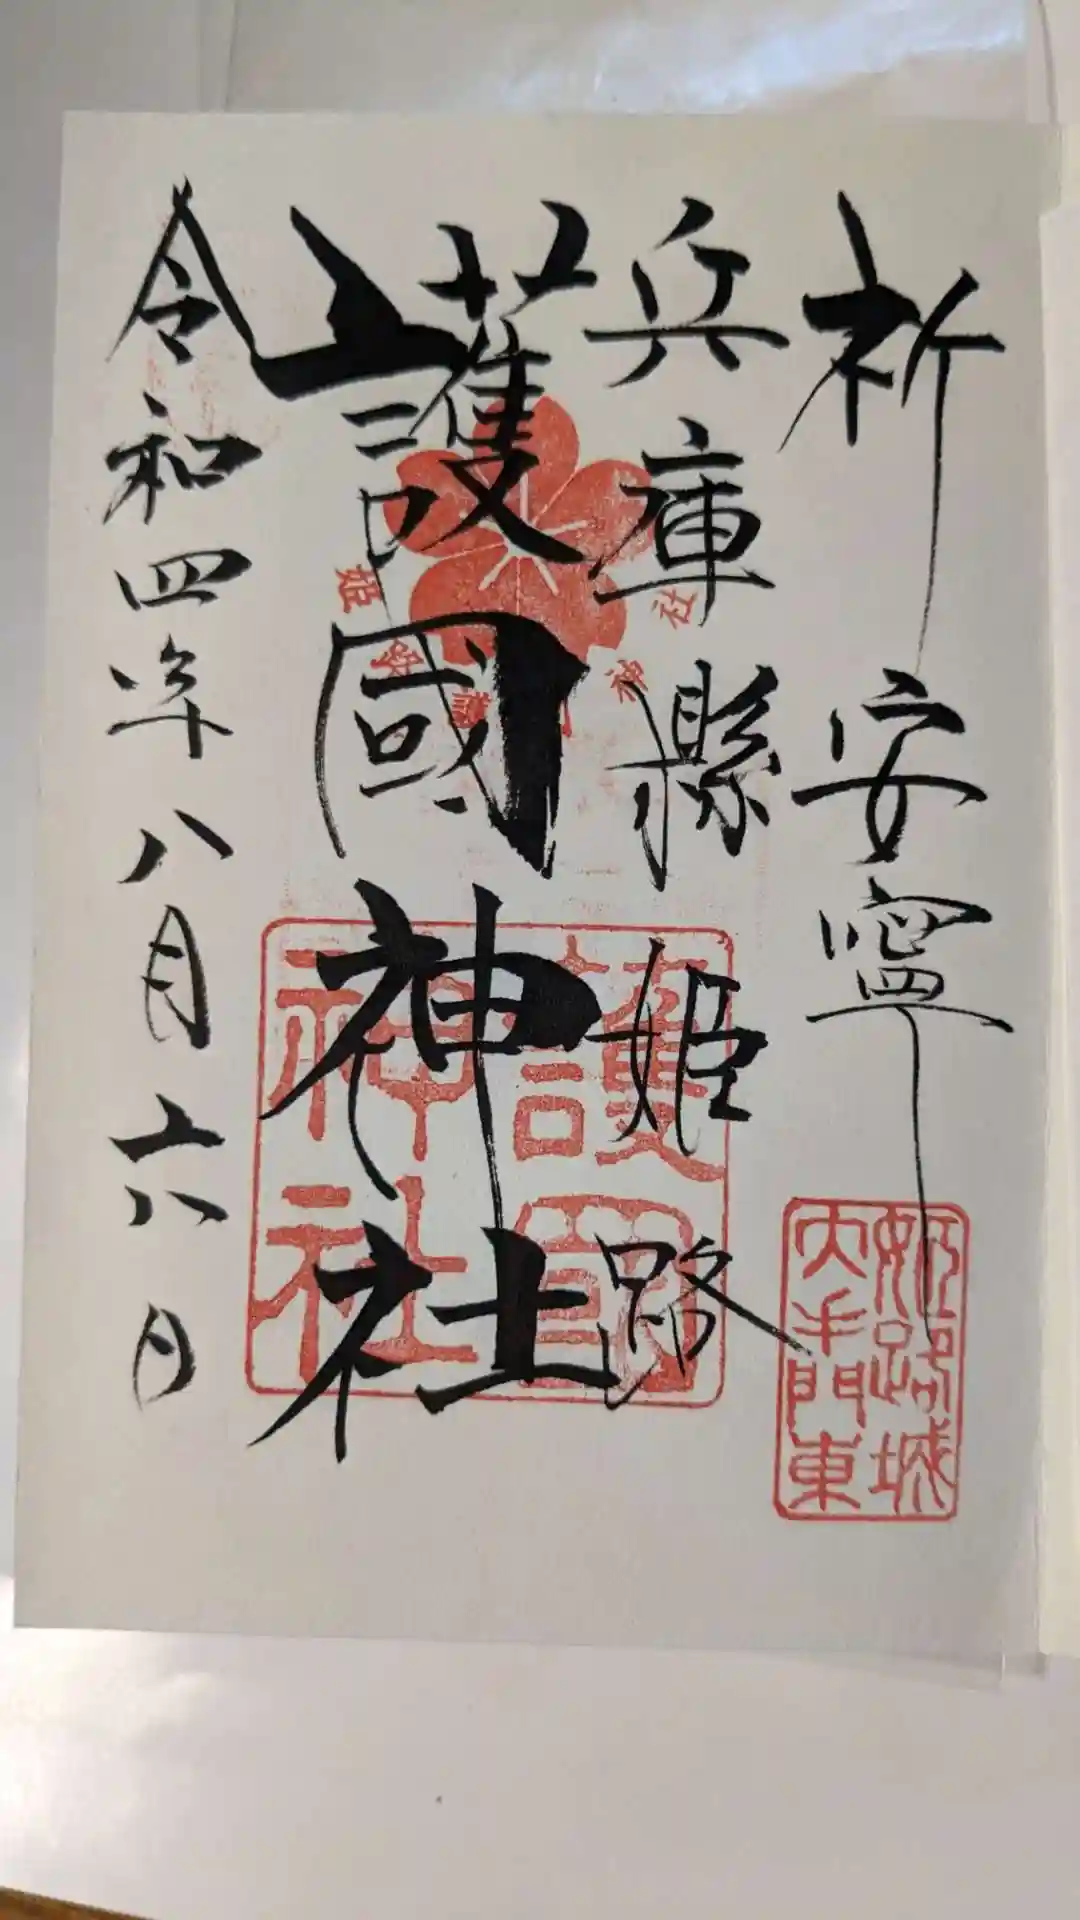 祈 安寧
兵庫縣姫路
護國神社
令和四年八月六日
姫路護國神社
護國神社
姫路城
大手門東